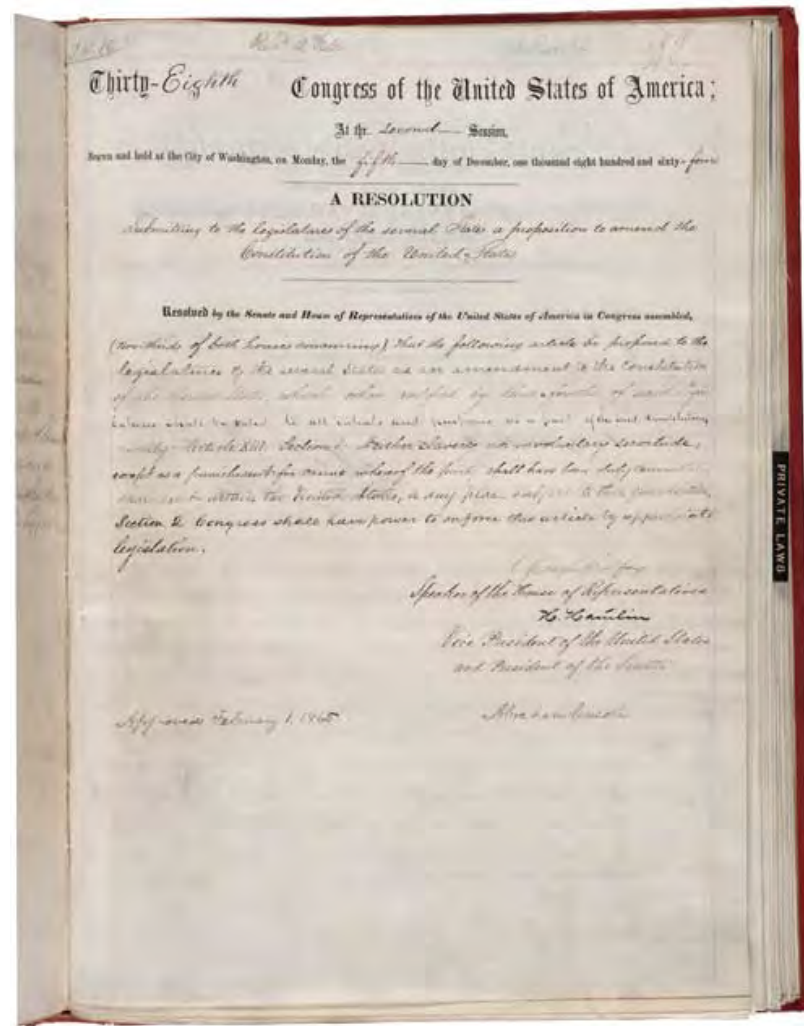 Thirty-Eighth Congress of the United States of America;
At the second Session,
Begun and held at the City of Washington, on Monday, the fifth day of December, one thousand eight hundred and sixty-four
A RESOLUTION
Submitting to the legislatures of the several States a proposition to amend the
Constitution of the United States
Resolved by the Senate and House of Representatives of the United States of America in Congress assembled,
(two-thirds of both houses concurring) That the following article be proposed to the
legislatures of the several States as an amendment to the Constitution
of the United States, which when ratified by three-fourths of said
shall be valid to all intents and purposes as a part of the said Constitution,
Article XIII. Section 1. Neither slavery nor involuntary servitude,
except as a punishment for crime whereof the party shall have been duly convicted
within the United States, or any place subject to their jurisdiction,
Section 2. Congress shall have power to enforce this article by appropriate
legislation.
Speaker of the House of Representatives
H. Hamlin
Vice President of the United States
and President of the Senate
Approved February 1. 1865
Abraham Lincoln
PRIVATE LAWS